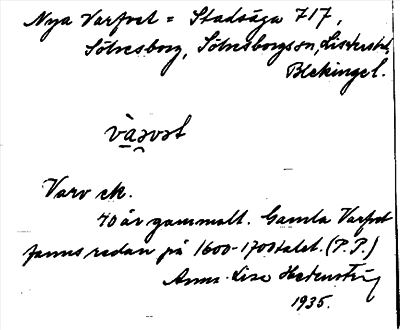 Nya Varfvet = Stadsäga 717,
Sölvesborg, Sölvesborgs sn, Listers hd,
Blekinge l.
vàrvət
Varv ck.
70 år gammalt. Gamla Varfvet
fanns redan på 1600-1700talet. (P.P.)
Anna-Lisa Hedenstig
1935.